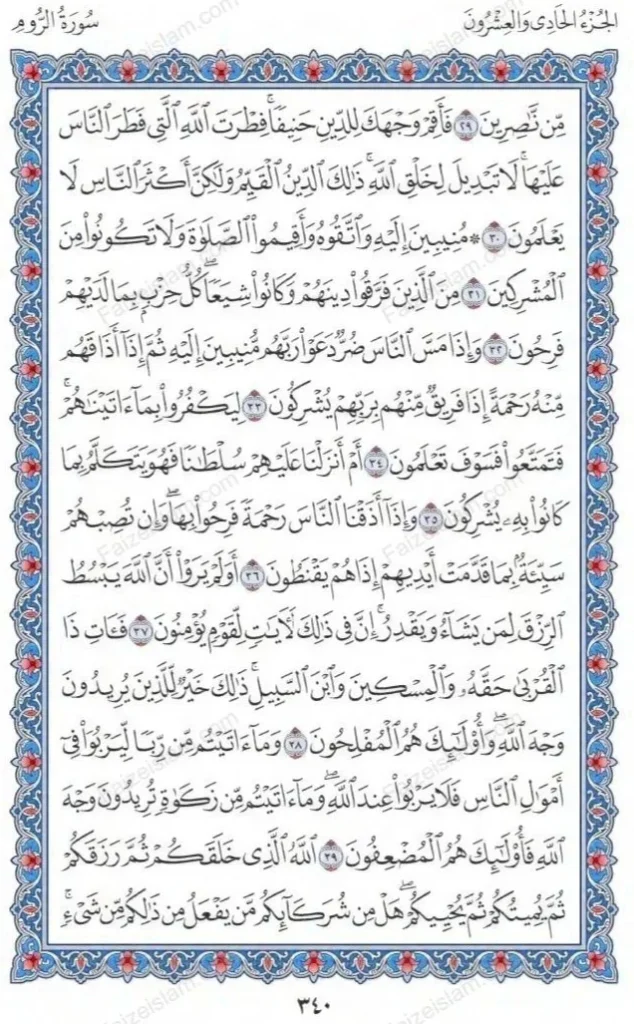 الجُزْءُ الحَادِى وَالعِشْرُونَ
سُورَةُ الرُّومِ
مِّن نَّٰصِرِينَ ٢٩ فَأَقِمْ وَجْهَكَ لِلدِّينِ حَنِيفًا ۚ فِطْرَتَ ٱللَّهِ ٱلَّتِى فَطَرَ ٱلنَّاسَ
عَلَيْهَا ۚ لَا تَبْدِيلَ لِخَلْقِ ٱللَّهِ ۚ ذَٰلِكَ ٱلدِّينُ ٱلْقَيِّمُ وَلَٰكِنَّ أَكْثَرَ ٱلنَّاسِ لَا
يَعْلَمُونَ ٣٠ ۞ مُنِيبِينَ إِلَيْهِ وَٱتَّقُوهُ وَأَقِيمُوا۟ ٱلصَّلَوٰةَ وَلَا تَكُونُوا۟ مِنَ
ٱلْمُشْرِكِينَ ٣١ مِنَ ٱلَّذِينَ فَرَّقُوا۟ دِينَهُمْ وَكَانُوا۟ شِيَعًا ۖ كُلُّ حِزْبٍۭ بِمَا لَدَيْهِمْ
فَرِحُونَ ٣٢ وَإِذَا مَسَّ ٱلنَّاسَ ضُرٌّ دَعَوْا۟ رَبَّهُم مُّنِيبِينَ إِلَيْهِ ثُمَّ إِذَآ أَذَاقَهُم
مِّنْهُ رَحْمَةً إِذَا فَرِيقٌ مِّنْهُم بِرَبِّهِمْ يُشْرِكُونَ ٣٣ لِيَكْفُرُوا۟ بِمَآ ءَاتَيْنَٰهُمْ ۚ
فَتَمَتَّعُوا۟ فَسَوْفَ تَعْلَمُونَ ٣٤ أَمْ أَنزَلْنَا عَلَيْهِمْ سُلْطَٰنًا فَهُوَ يَتَكَلَّمُ بِمَا
كَانُوا۟ بِهِۦ يُشْرِكُونَ ٣٥ وَإِذَآ أَذَقْنَا ٱلنَّاسَ رَحْمَةً فَرِحُوا۟ بِهَا ۖ وَإِن تُصِبْهُمْ
سَيِّئَةٌۢ بِمَا قَدَّمَتْ أَيْدِيهِمْ إِذَا هُمْ يَقْنَطُونَ ٣٦ أَوَلَمْ يَرَوْا۟ أَنَّ ٱللَّهَ يَبْسُطُ
ٱلرِّزْقَ لِمَن يَشَآءُ وَيَقْدِرُ ۚ إِنَّ فِى ذَٰلِكَ لَءَايَٰتٍ لِّقَوْمٍ يُؤْمِنُونَ ٣٧ فَـَٔاتِ ذَا
ٱلْقُرْبَىٰ حَقَّهُۥ وَٱلْمِسْكِينَ وَٱبْنَ ٱلسَّبِيلِ ۚ ذَٰلِكَ خَيْرٌ لِّلَّذِينَ يُرِيدُونَ
وَجْهَ ٱللَّهِ ۖ وَأُو۟لَٰٓئِكَ هُمُ ٱلْمُفْلِحُونَ ٣٨ وَمَآ ءَاتَيْتُم مِّن رِّبًا لِّيَرْبُوَا۟ فِىٓ
أَمْوَٰلِ ٱلنَّاسِ فَلَا يَرْبُوا۟ عِندَ ٱللَّهِ ۖ وَمَآ ءَاتَيْتُم مِّن زَكَوٰةٍ تُرِيدُونَ وَجْهَ
ٱللَّهِ فَأُو۟لَٰٓئِكَ هُمُ ٱلْمُضْعِفُونَ ٣٩ ٱللَّهُ ٱلَّذِى خَلَقَكُمْ ثُمَّ رَزَقَكُمْ
ثُمَّ يُمِيتُكُمْ ثُمَّ يُحْيِيكُمْ ۖ هَلْ مِن شُرَكَآئِكُم مَّن يَفْعَلُ مِن ذَٰلِكُم مِّن شَىْءٍ ۚ
٣٤٠
Faizeislam.com